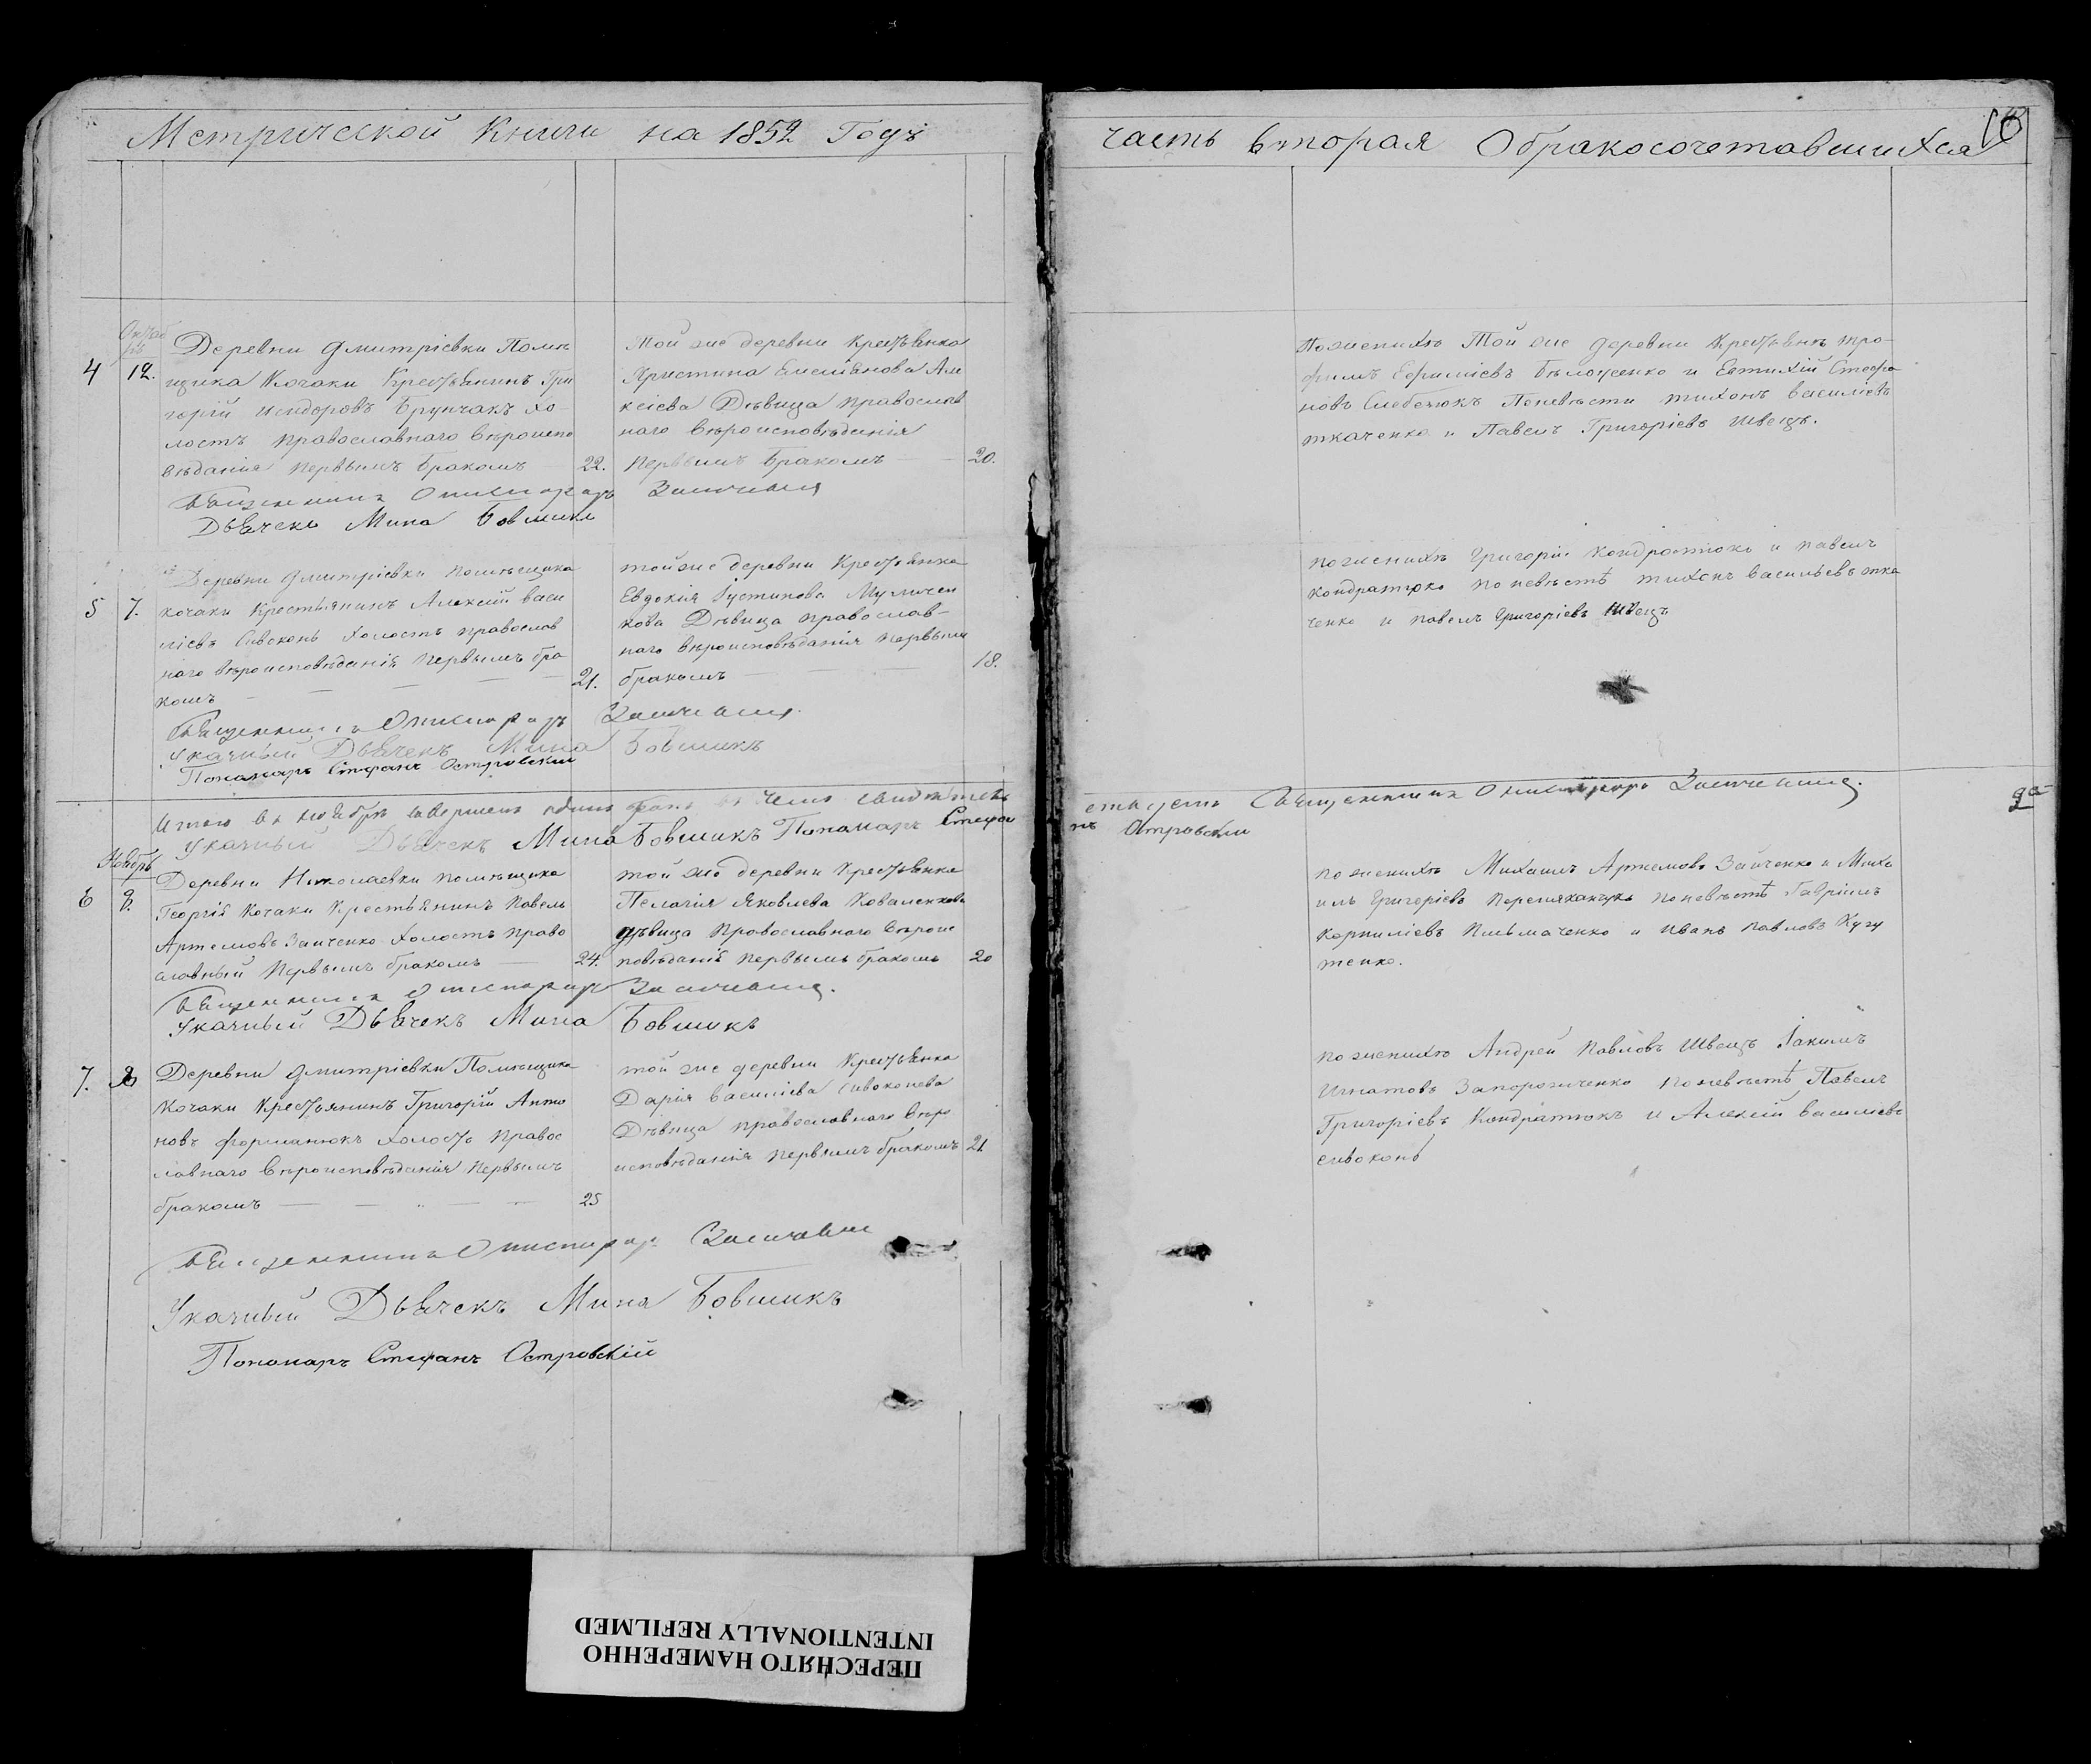 Метрической Книги на 1852 Годъ
часть вторая О бракосочетавшихся
4 12. Деревни Дмитріевки Помѣ
щика Кочаки Крестьянинъ Гри
горій Исидоровъ Брунчакъ хо-
лостъ православнаго вѣроиспо
вѣданія первымъ бракомъ 22.
той же деревни Крестьянка
Христина Емельянова Але
ксіева Дѣвица православ
наго вѣроисповѣданія
первымъ бракомъ 20.
Священникъ
Дьячекъ Мина Бовшикъ
По женихѣ той же деревни Крестьянъ тро-
фимъ Ефиміевъ и Евтихій Стефа
новъ По невѣсти тихонъ василіевъ
ткаченко и Павелъ Григоріевъ швецъ.
5 7. Деревни Дмитріевки помѣщика
кочаки Крестьянинъ Алексій васи
ліевъ Сивоконь холостъ православ
наго вѣроисповѣданія первымъ бра
комъ 21.
той же деревни Крестьянка
Евдокія Іустинова
кова Дѣвица православ-
наго вѣроисповѣданія первымъ
бракомъ 18.
Священникъ
Указный Дьячекъ Мина Бовшикъ
Пономаръ Стефанъ Островскій
по женихѣ Григорій Кондратюкъ и павелъ
кондратюкъ по невѣстѣ тихонъ васильевъ тка
ченко и павелъ Григоріевъ Швецъ
Итого въ
Указный Дьячекъ Мина Бовшикъ Пономаръ Стефа
нъ Островскій
Ноябрь
6 Деревни Николаевки помѣщика
Георгія Кочаки Крестьянинъ Павелъ
Артемовъ Заиченко холостъ право
славный Первымъ бракомъ 24.
той же деревни Крестьянка
Пелагія Яковлева Коваленкова
дѣвица Православнаго вѣроис
повѣданія первымъ бракомъ 20
Священникъ
Указный Дьячекъ Мина Бовшикъ
по женихѣ Михаилъ Артемовъ Заиченко и Миха
илъ Григоріевъ по невѣстѣ Гавріилъ
Корниліевъ Письмаченко и Иванъ Павловъ Кузу
менко.
7. Деревни Дмитріевки Помѣщика
Кочаки Крестьянинъ Григорій Анто
новъ Форманюкъ холостъ Правос
лавнаго вѣроисповѣданія Первымъ
бракомъ 25
той же деревни Крестьянка
Дарія Василіева Сивоконева
Дѣвица православнаго вѣро
исповѣданія первымъ бракомъ 21
по женихѣ Андрей Павловъ Швецъ Іакимъ
Игнатовъ Запорожченко по невѣстѣ Павелъ
Григоріевъ Кондратюкъ и Алексій василіевъ
сивоконь
Священникъ
Указный Дьячекъ Мина Бовшикъ
Пономаръ Стефанъ Островскій
ПЕРЕСНЯТО НАМЕРЕННО
INTENTIONALLY REFILMED